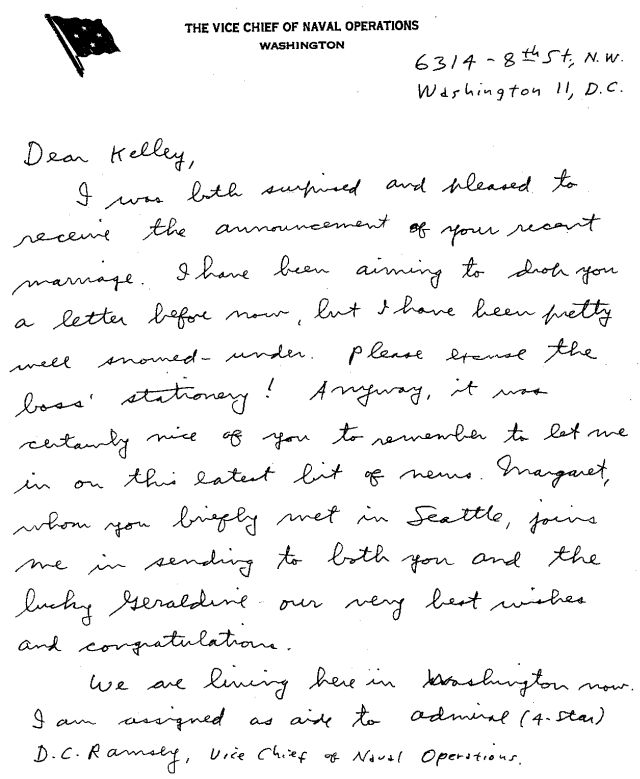 THE VICE CHIEF OF NAVAL OPERATIONS
WASHINGTON
6314 - 8th St, N.W.
Washington 11, D.C.
Dear Kelley,
I was both surprised and pleased to
receive the announcement of your recent
marriage. I have been aiming to drop you
a letter before now, but I have been pretty
well snowed-under. Please excuse the
boss' stationery! Anyway, it was
certainly nice of you to remember to let me
in on this latest bit of news. Margaret,
whom you briefly met in Seattle, joins
me in sending to both you and the
lucky Geraldine our very best wishes
and congratulations.
We are living here in Washington now.
I am assigned as aide to Admiral (4-star)
D.C. Ramsey, Vice Chief of Naval Operations.